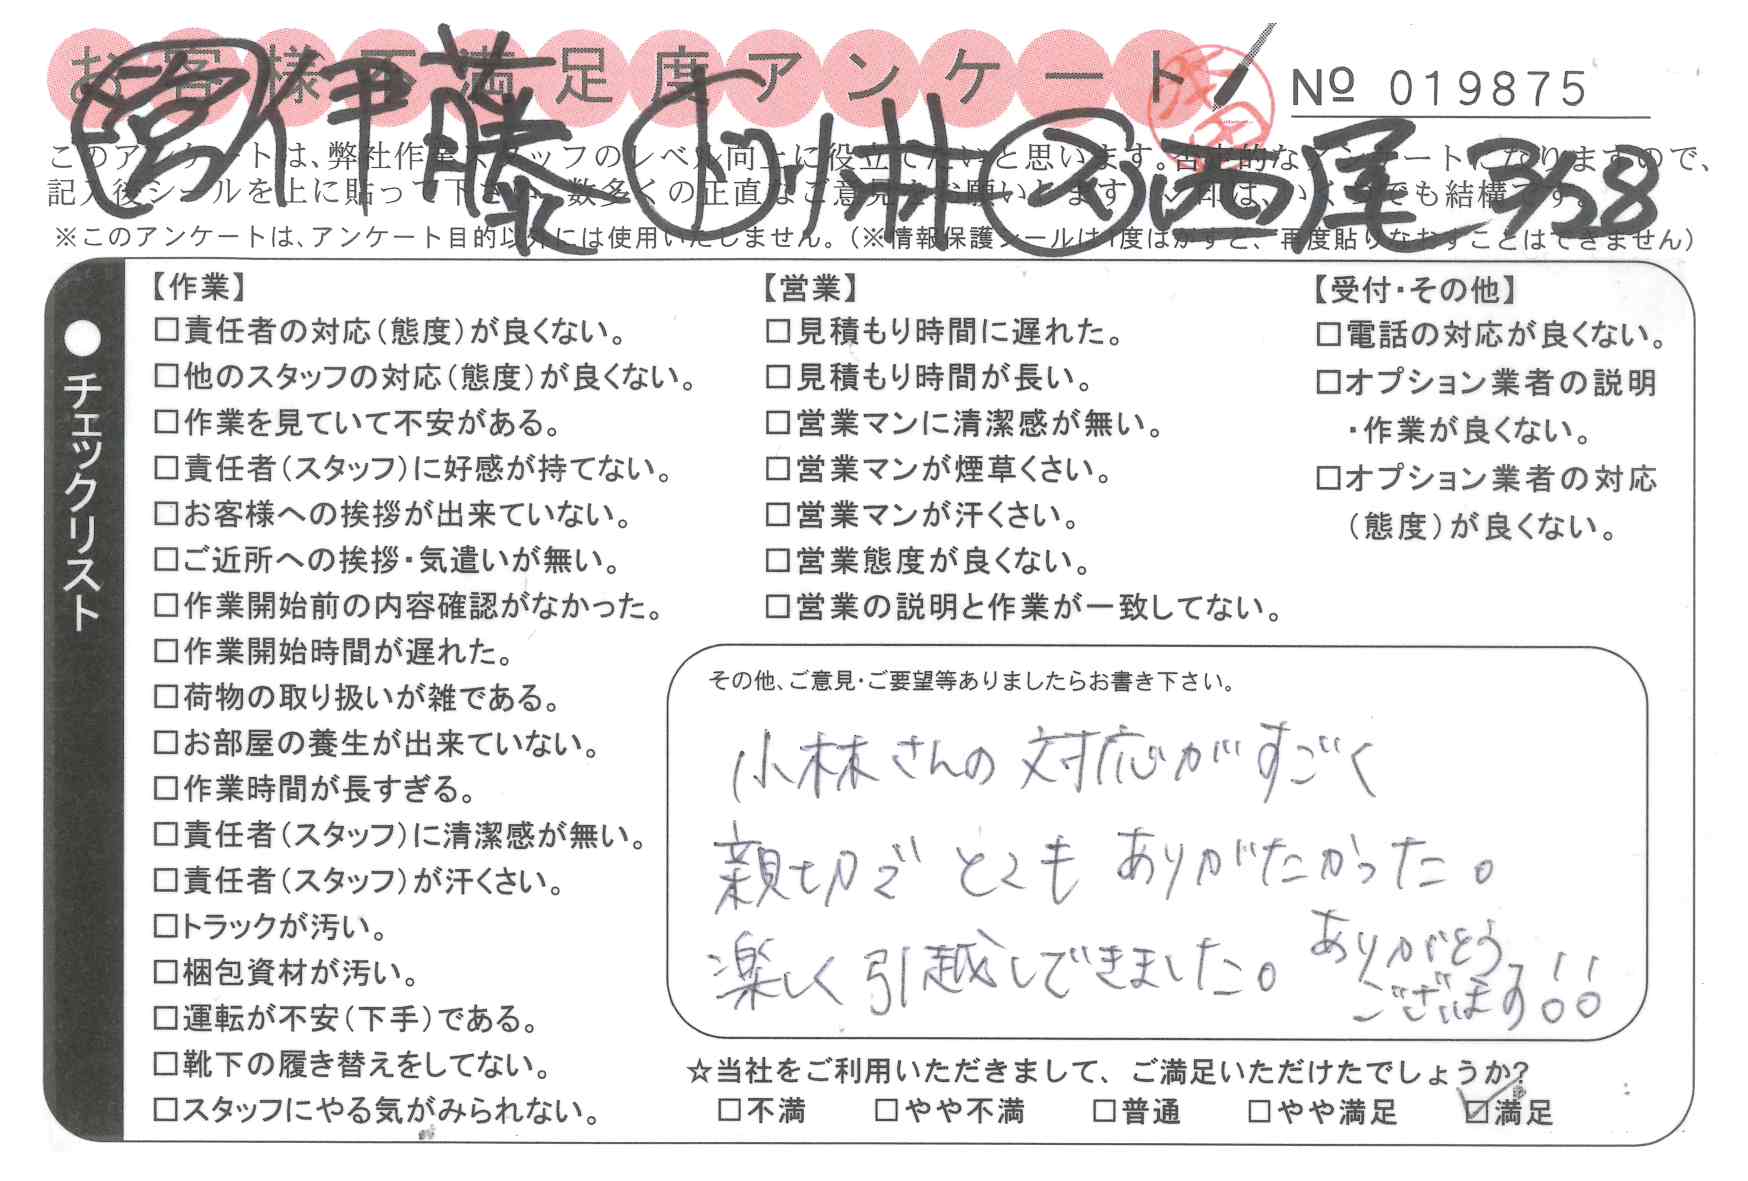 お客様不満足度アンケート
Nº 019875
営 伊藤 ド 小林 ス 西尾 3/28
このアンケートは、弊社作業スタッフのレベル向上に役立てたいと思います。 的なアンケートになりますので、
記入後シールを上に貼って下さい。数多くの正直なご意見をお願いします。 印は、いくつでも結構です。
※このアンケートは、アンケート目的以外には使用いたしません。(※情報保護シールは1度はがすと、再度貼りなおすことはできません)
●チェックリスト
【作業】
□責任者の対応(態度)が良くない。
□他のスタッフの対応(態度)が良くない。
□作業を見ていて不安がある。
□責任者(スタッフ)に好感が持てない。
□お客様への挨拶が出来ていない。
□ご近所への挨拶・気遣いが無い。
□作業開始前の内容確認がなかった。
□作業開始時間が遅れた。
□荷物の取り扱いが雑である。
□お部屋の養生が出来ていない。
□作業時間が長すぎる。
□責任者(スタッフ)に清潔感が無い。
□責任者(スタッフ)が汗くさい。
□トラックが汚い。
□梱包資材が汚い。
□運転が不安(下手)である。
□靴下の履き替えをしてない。
□スタッフにやる気がみられない。
【営業】
□見積もり時間に遅れた。
□見積もり時間が長い。
□営業マンに清潔感が無い。
□営業マンが煙草くさい。
□営業マンが汗くさい。
□営業態度が良くない。
□営業の説明と作業が一致してない。
【受付・その他】
□電話の対応が良くない。
□オプション業者の説明
・作業が良くない。
□オプション業者の対応
(態度)が良くない。
その他、ご意見・ご要望等ありましたらお書き下さい。
小林さんの対応がすごく
親切でとてもありがたかった。
楽しく引越しできました。
ありがとう
ございます!!
☆当社をご利用いただきまして、ご満足いただけたでしょうか?
□不満 □やや不満 □普通 □やや満足 ☑満足